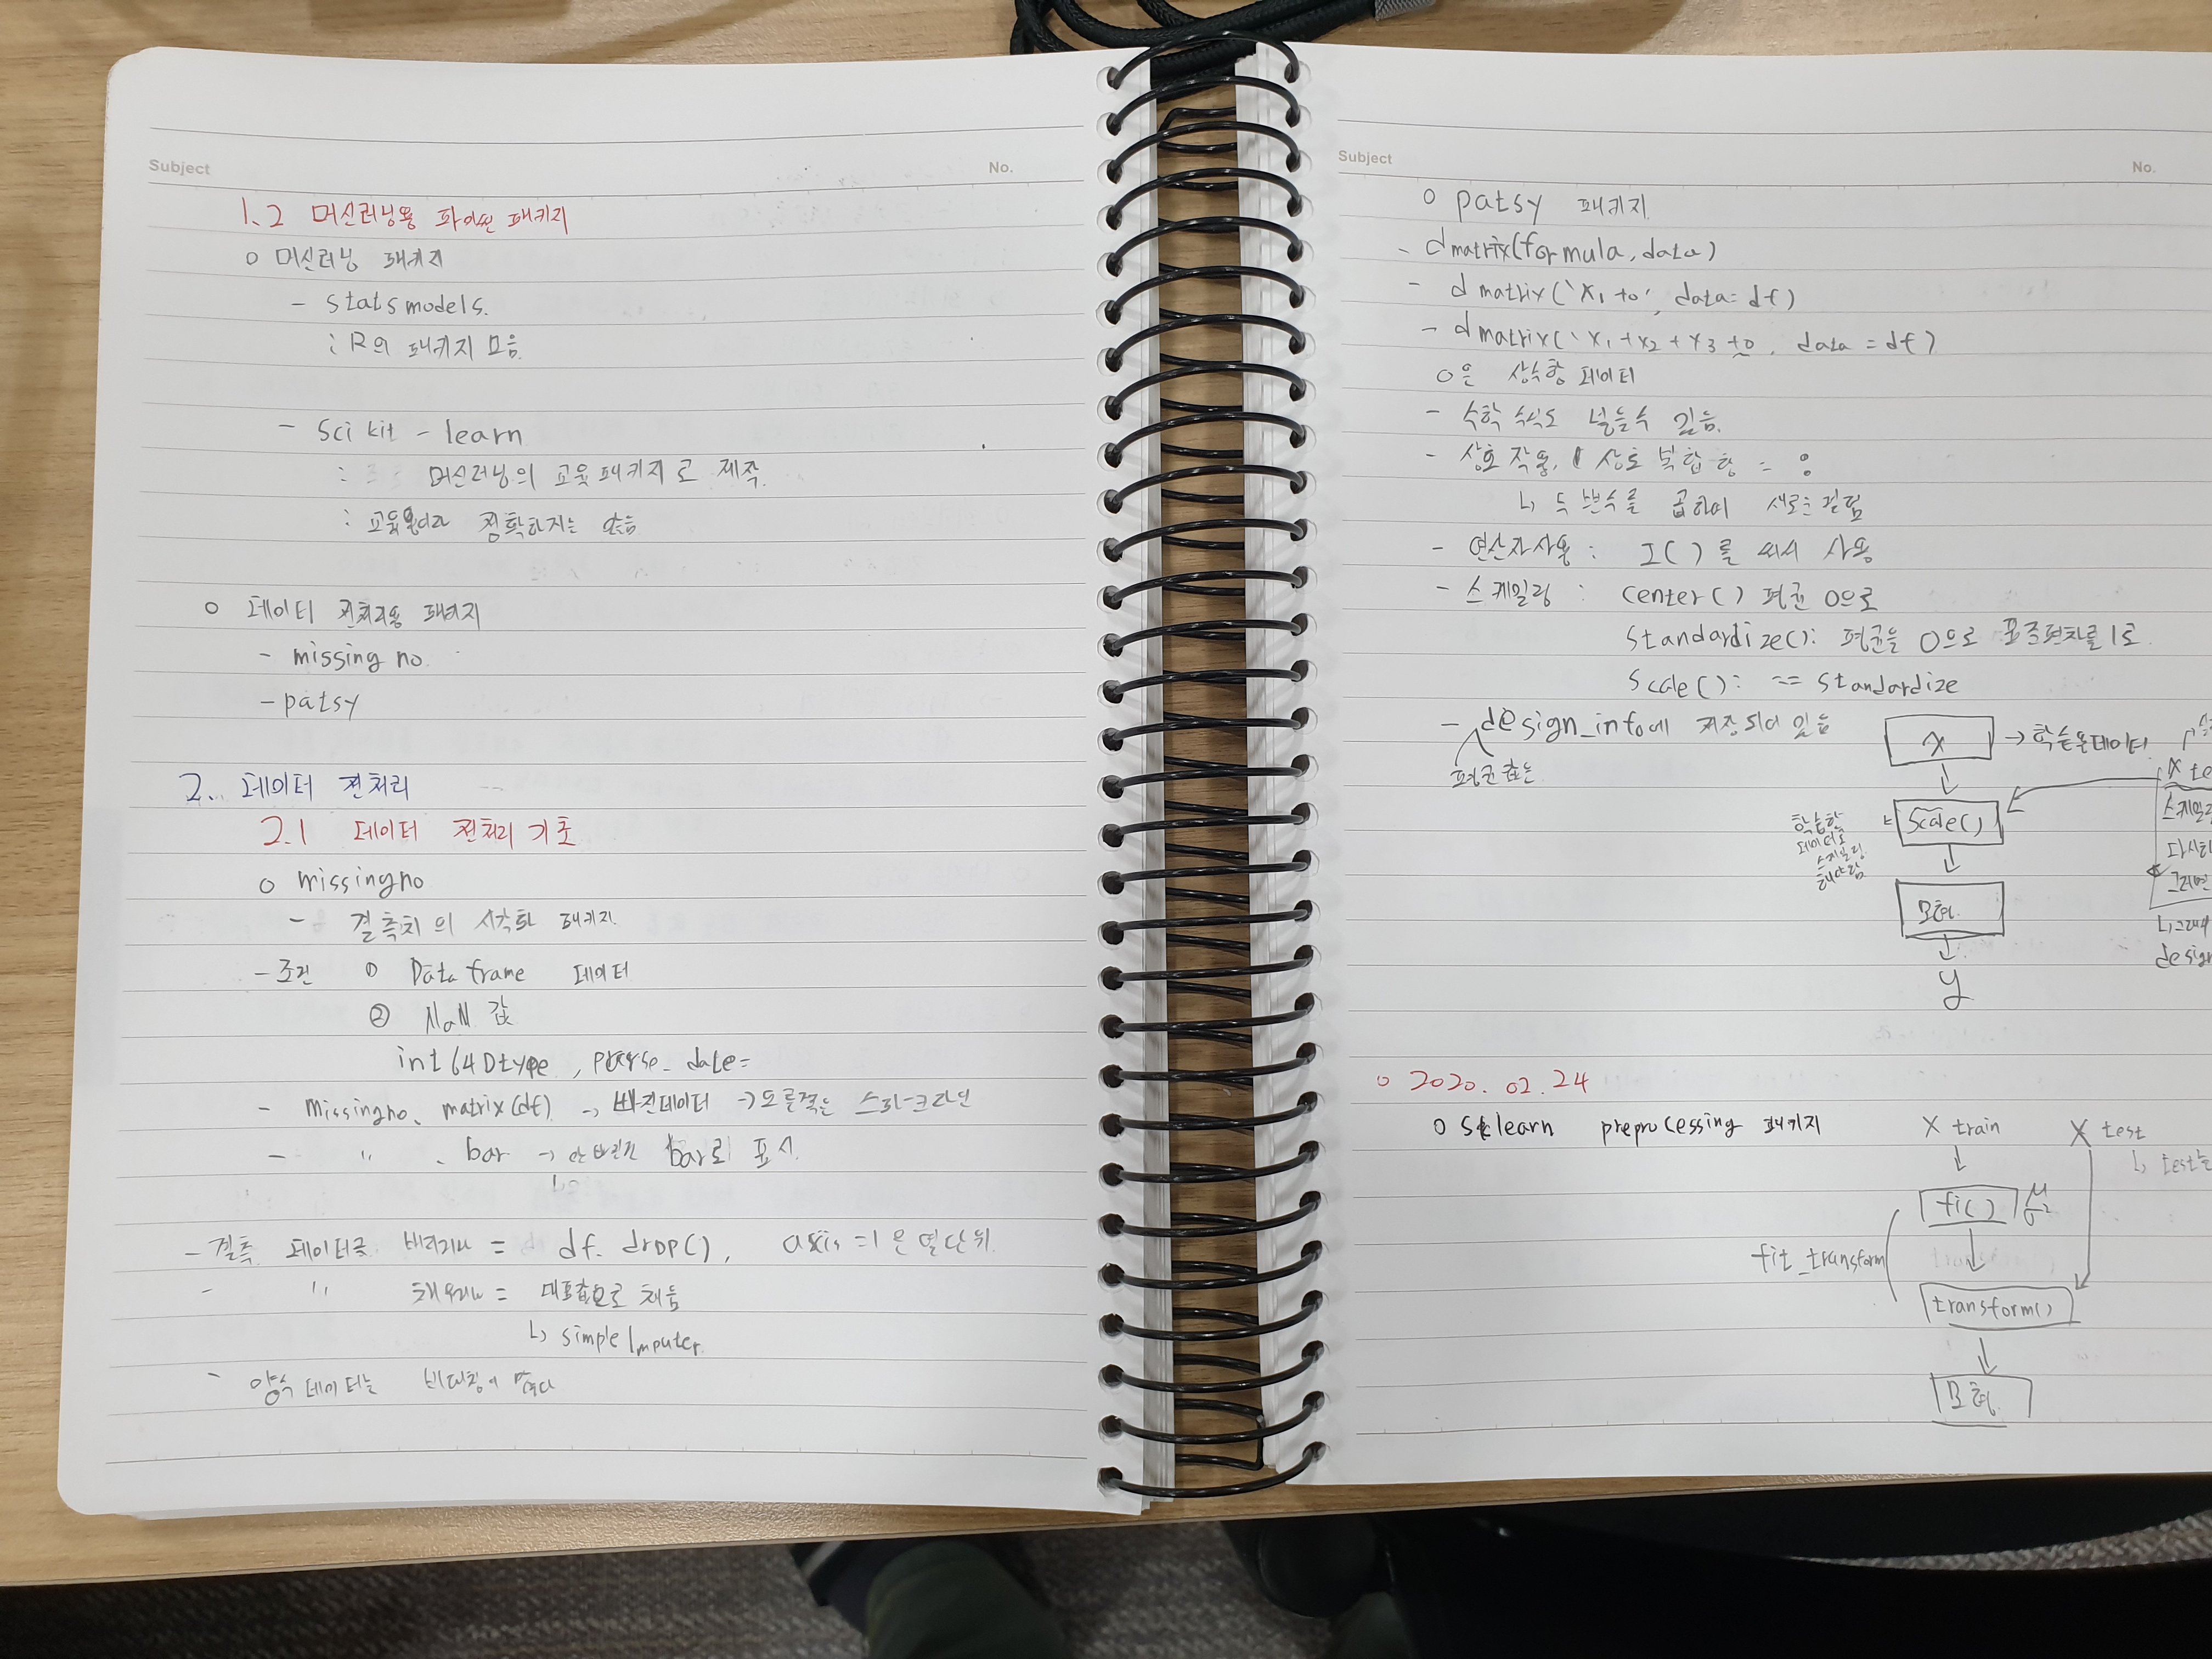 Subject No.
1.2 머신러닝용 파이썬 패키지
o 머신러닝 패키지
- statsmodels.
: R의 패키지 모음.
- Sci kit - learn
: 머신러닝의 교육패키지로 제작.
: 교육용이라 정확하지는 않음
o 데이터 전처리용 패키지
- missing no.
- patsy
2. 데이터 전처리
2.1 데이터 전처리 기초
o missingno
- 결측치의 시각화 패키지.
- 조건 ① Data frame 데이터
② NaN 값
int64Dtype, parse_date=
- missingno. matrix(df) → 빠진데이터 → 오른쪽은 스파크라인
- " . bar → 안빠진건 bar로 표시.
- 결측 데이터를 버리기 = df. drop(), axis =1 은 열단위
- " 채우기 = 대표값으로 채움
ㄴ, simple Imputer.
- 양수 데이터는 비대칭이 많다
Subject No.
o patsy 패키지
- dmatrix(formula, data)
- dmatrix('x1 +0', data=df)
- dmatrix('x1 +x2 + x3 +0, data = df)
0은 상수항 데이터
- 수학 수식도 넣을수 있음.
- 상호작용, 상호복합항 = :
ㄴ, 두 변수를 곱하여 새로은
- 연산자사용 : I( )를 써서 사용
- 스케일링 : center() 평균 0으로
standardize(): 평균을 0으로 표준편차를 1로.
Scale(): == standardize
- design_info에 저장되어 있음
평균 값은
X → 학습용데이터
X te
스케일링
Scale()
학습한
데이터로
스케일링
해야함
다시하
그러면
모형.
ㄴ,그래서
design
y
o 2020. 02. 24
o Sklearn preprocessing 패키지
X train X test
ㄴ, test는
fi() μ σ²
fit_transform
transform()
모형.